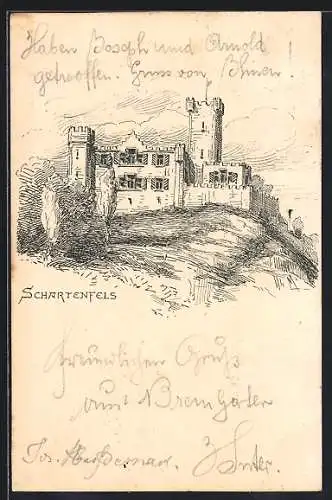 Haben Joseph und Arnold
getroffen. Gruss von !
SCHARTENFELS
Freundlichen Gruß
aus Bremgarten
Jos.